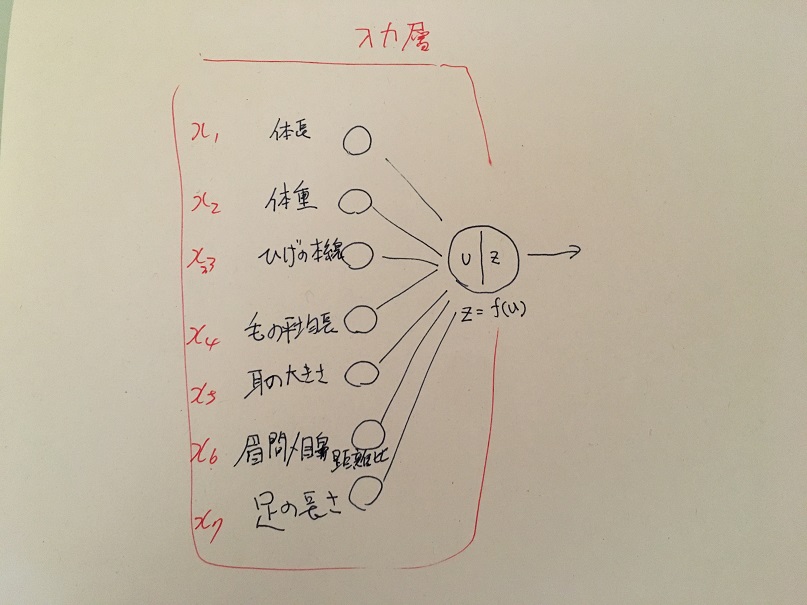 入力層
x₁ 体長
x₂ 体重
x₃ ひげの本線
x₄ 毛の平均長
x₅ 耳の大きさ
x₆ 眉間/目鼻距離比
x₇ 足の長さ
u z
z = f(u)